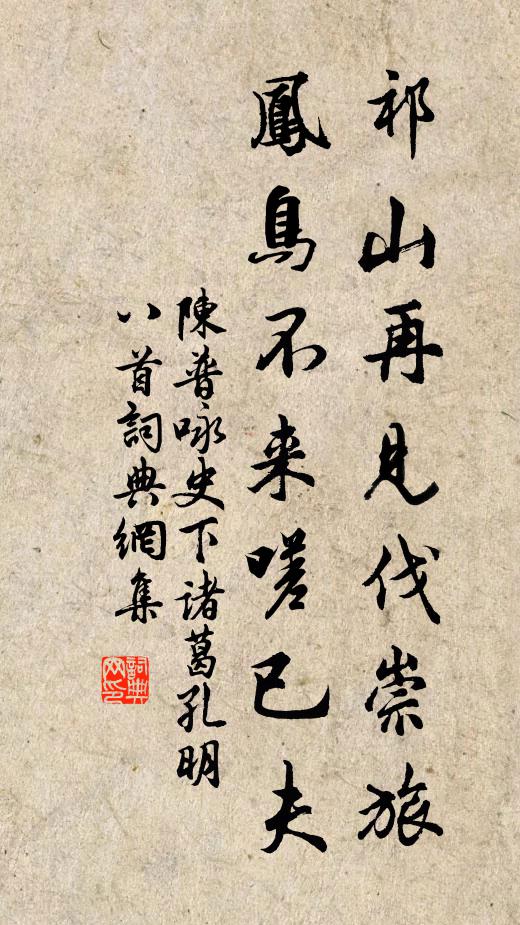 祁山再見伐崇旅
鳳鳥不来嗟已夫
陳普咏史下諸葛孔明
八首詞典網集
詞典网印